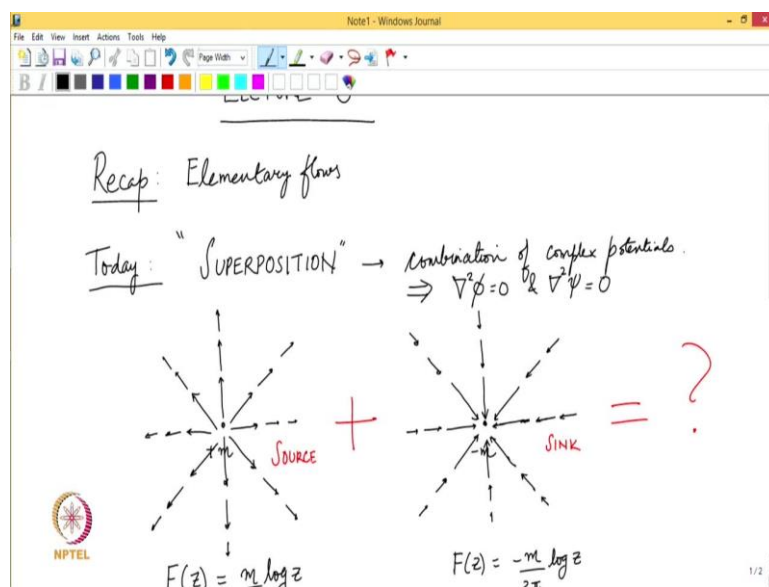 Note1 - Windows Journal
File Edit View Insert Actions Tools Help
Page Width
B I
Recap: Elementary flows
Today: "SUPERPOSITION" → combination of complex potentials.
⇒ ∇²φ=0 & ∇²ψ=0
+ = ?
+m SOURCE
-m SINK
NPTEL
F(z) = m log z
F(z) = -m/2π log z
1/2